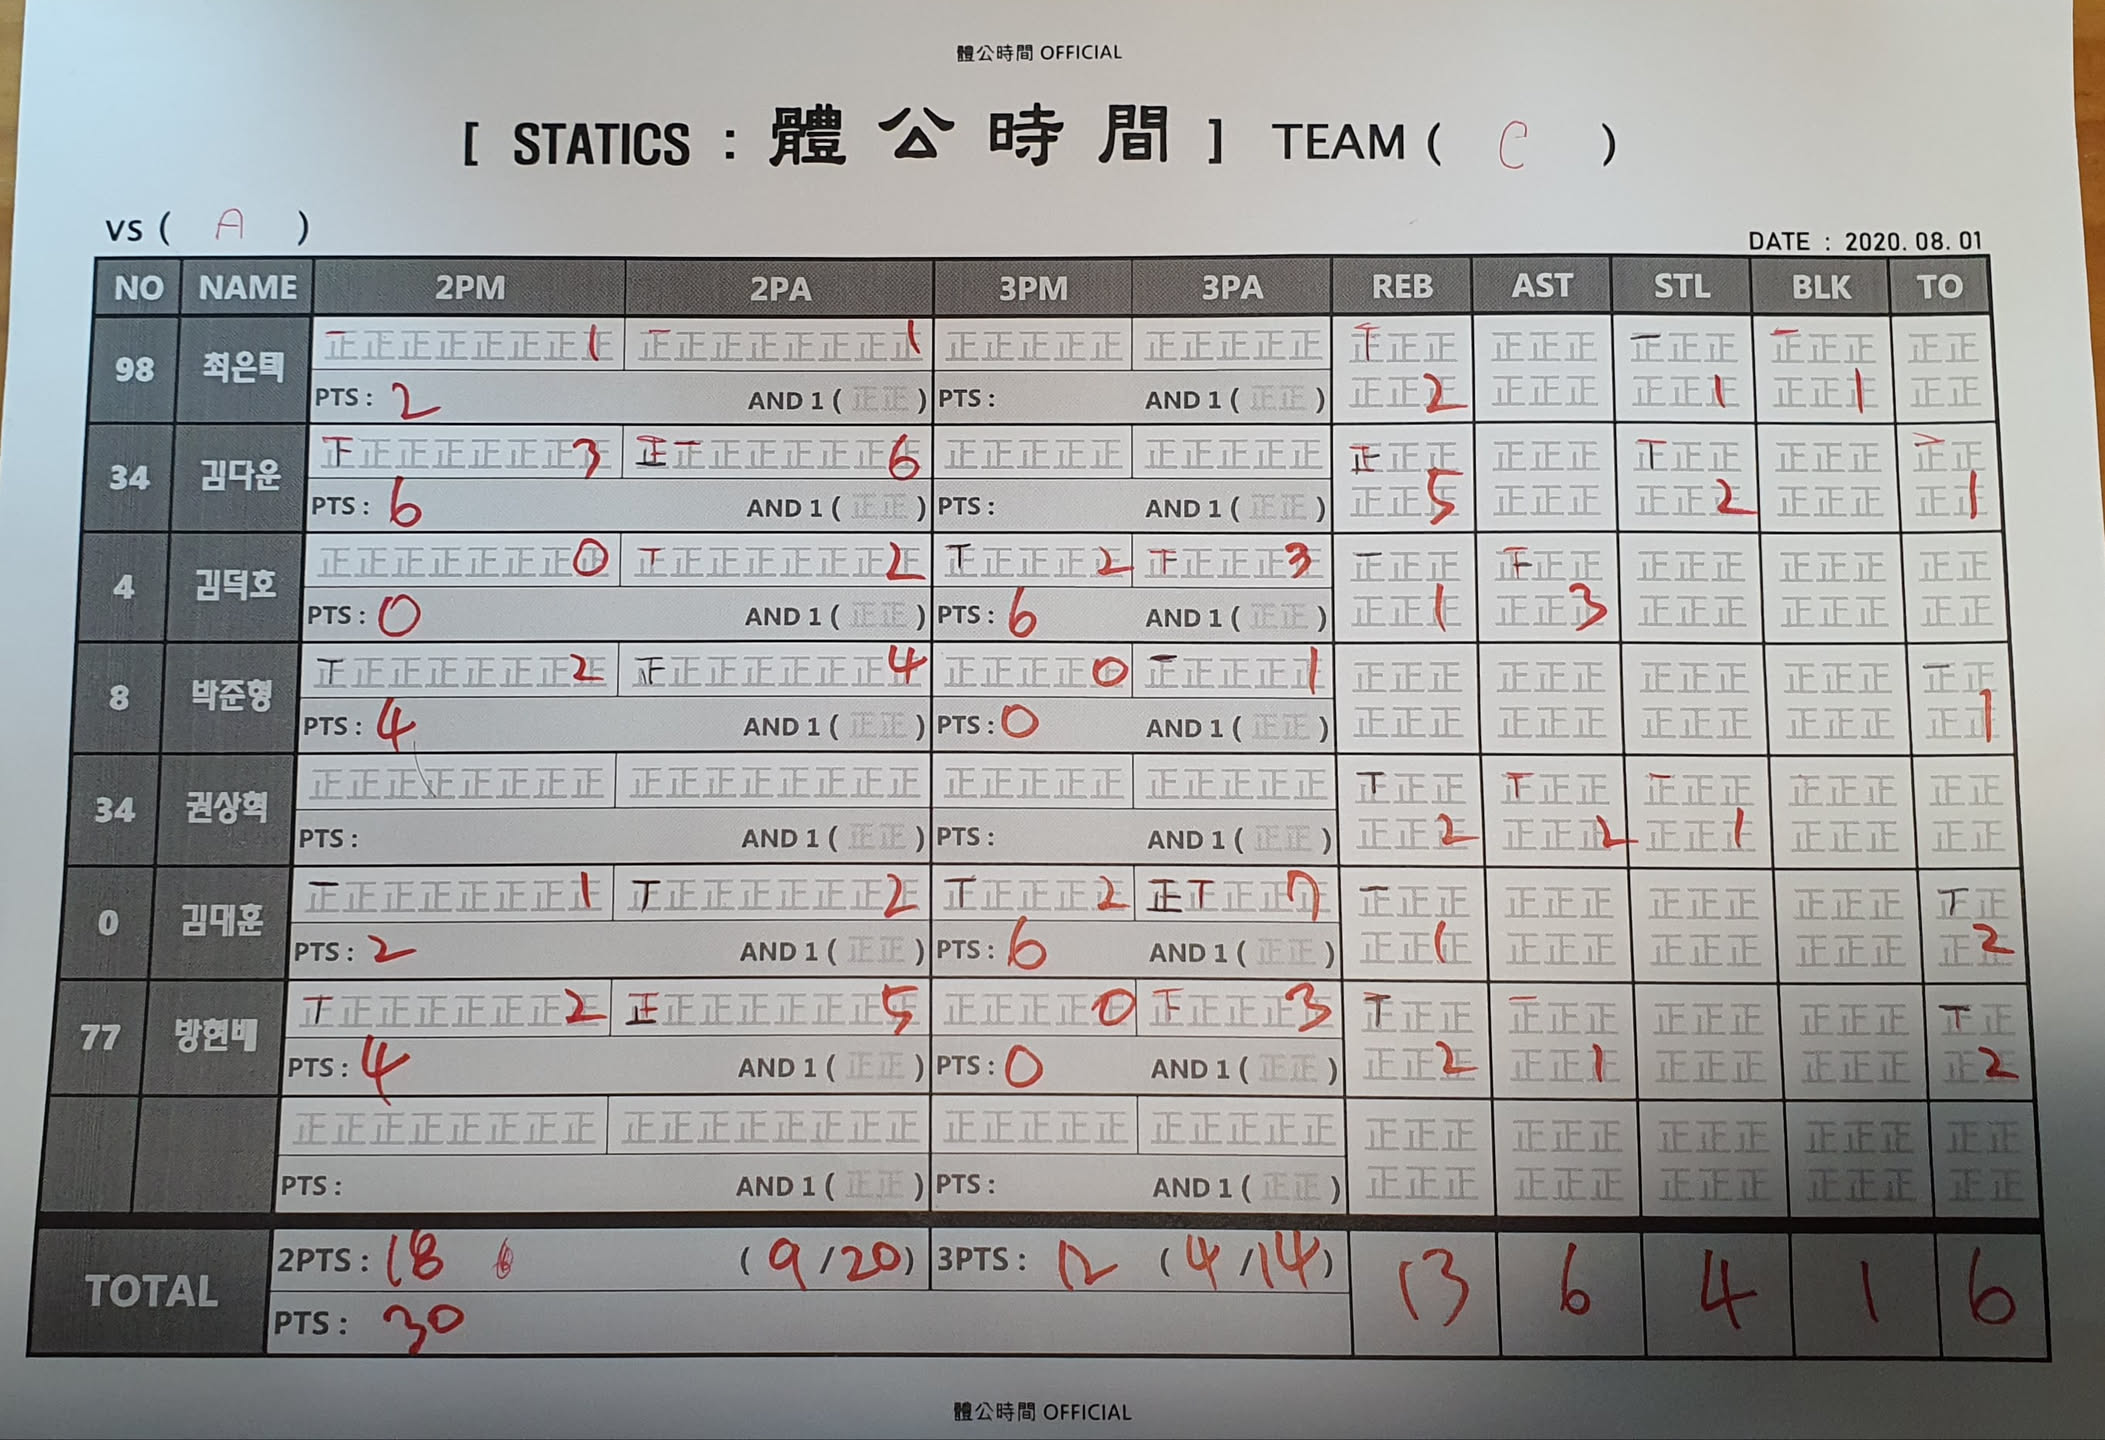 體公時間 OFFICIAL
[ STATICS : 體公時間 ] TEAM ( C )
vs ( A )
DATE : 2020. 08. 01
NO NAME 2PM 2PA 3PM 3PA REB AST STL BLK TO
正正正正正正正正 1 正正正正正正正正 1 正正正正正 正正正正正 正正正 正正正 正正正 正正正 正正
98 최은택
PTS : 2 AND 1 ( 正正 ) PTS : AND 1 ( 正正 ) 正正正 2 正正正 正正正 1 正正正 1 正正
正正正正正正正正 3 正正正正正正正正 6 正正正正正 正正正正正 正正正 正正正 正正正 正正正 正正
34 김다운
PTS : 6 AND 1 ( 正正 ) PTS : AND 1 ( 正正 ) 正正正 5 正正正 正正正 2 正正正 正正 1
正正正正正正正正 0 正正正正正正正正 2 正正正正正 2 正正正正正 3 正正正 正正正 正正正 正正正 正正
4 김덕호
PTS : 0 AND 1 ( 正正 ) PTS : 6 AND 1 ( 正正 ) 正正正 1 正正正 3 正正正 正正正 正正
正正正正正正正正 2 正正正正正正正正 4 正正正正正 0 正正正正正 1 正正正 正正正 正正正 正正正 正正
8 박준형
PTS : 4 AND 1 ( 正正 ) PTS : 0 AND 1 ( 正正 ) 正正正 正正正 正正正 正正正 正正 1
正正正正正正正正 正正正正正正正正 正正正正正 正正正正正 正正正 正正正 正正正 正正正 正正
34 권상혁
PTS : AND 1 ( 正正 ) PTS : AND 1 ( 正正 ) 正正正 2 正正正 2 正正正 1 正正正 正正
正正正正正正正正 1 正正正正正正正正 2 正正正正正 2 正正正正正 7 正正正 正正正 正正正 正正正 正正
0 김대훈
PTS : 2 AND 1 ( 正正 ) PTS : 6 AND 1 ( 正正 ) 正正正 1 正正正 正正正 正正正 正正 2
正正正正正正正正 2 正正正正正正正正 5 正正正正正 0 正正正正正 3 正正正 正正正 正正正 正正正 正正
77 방현배
PTS : 4 AND 1 ( 正正 ) PTS : 0 AND 1 ( 正正 ) 正正正 2 正正正 1 正正正 正正正 正正 2
正正正正正正正正 正正正正正正正正 正正正正正 正正正正正 正正正 正正正 正正正 正正正 正正
PTS : AND 1 ( 正正 ) PTS : AND 1 ( 正正 ) 正正正 正正正 正正正 正正正 正正
2PTS : 18 ( 9 / 20 ) 3PTS : 12 ( 4 / 14 )
TOTAL 13 6 4 1 6
PTS : 30
體公時間 OFFICIAL